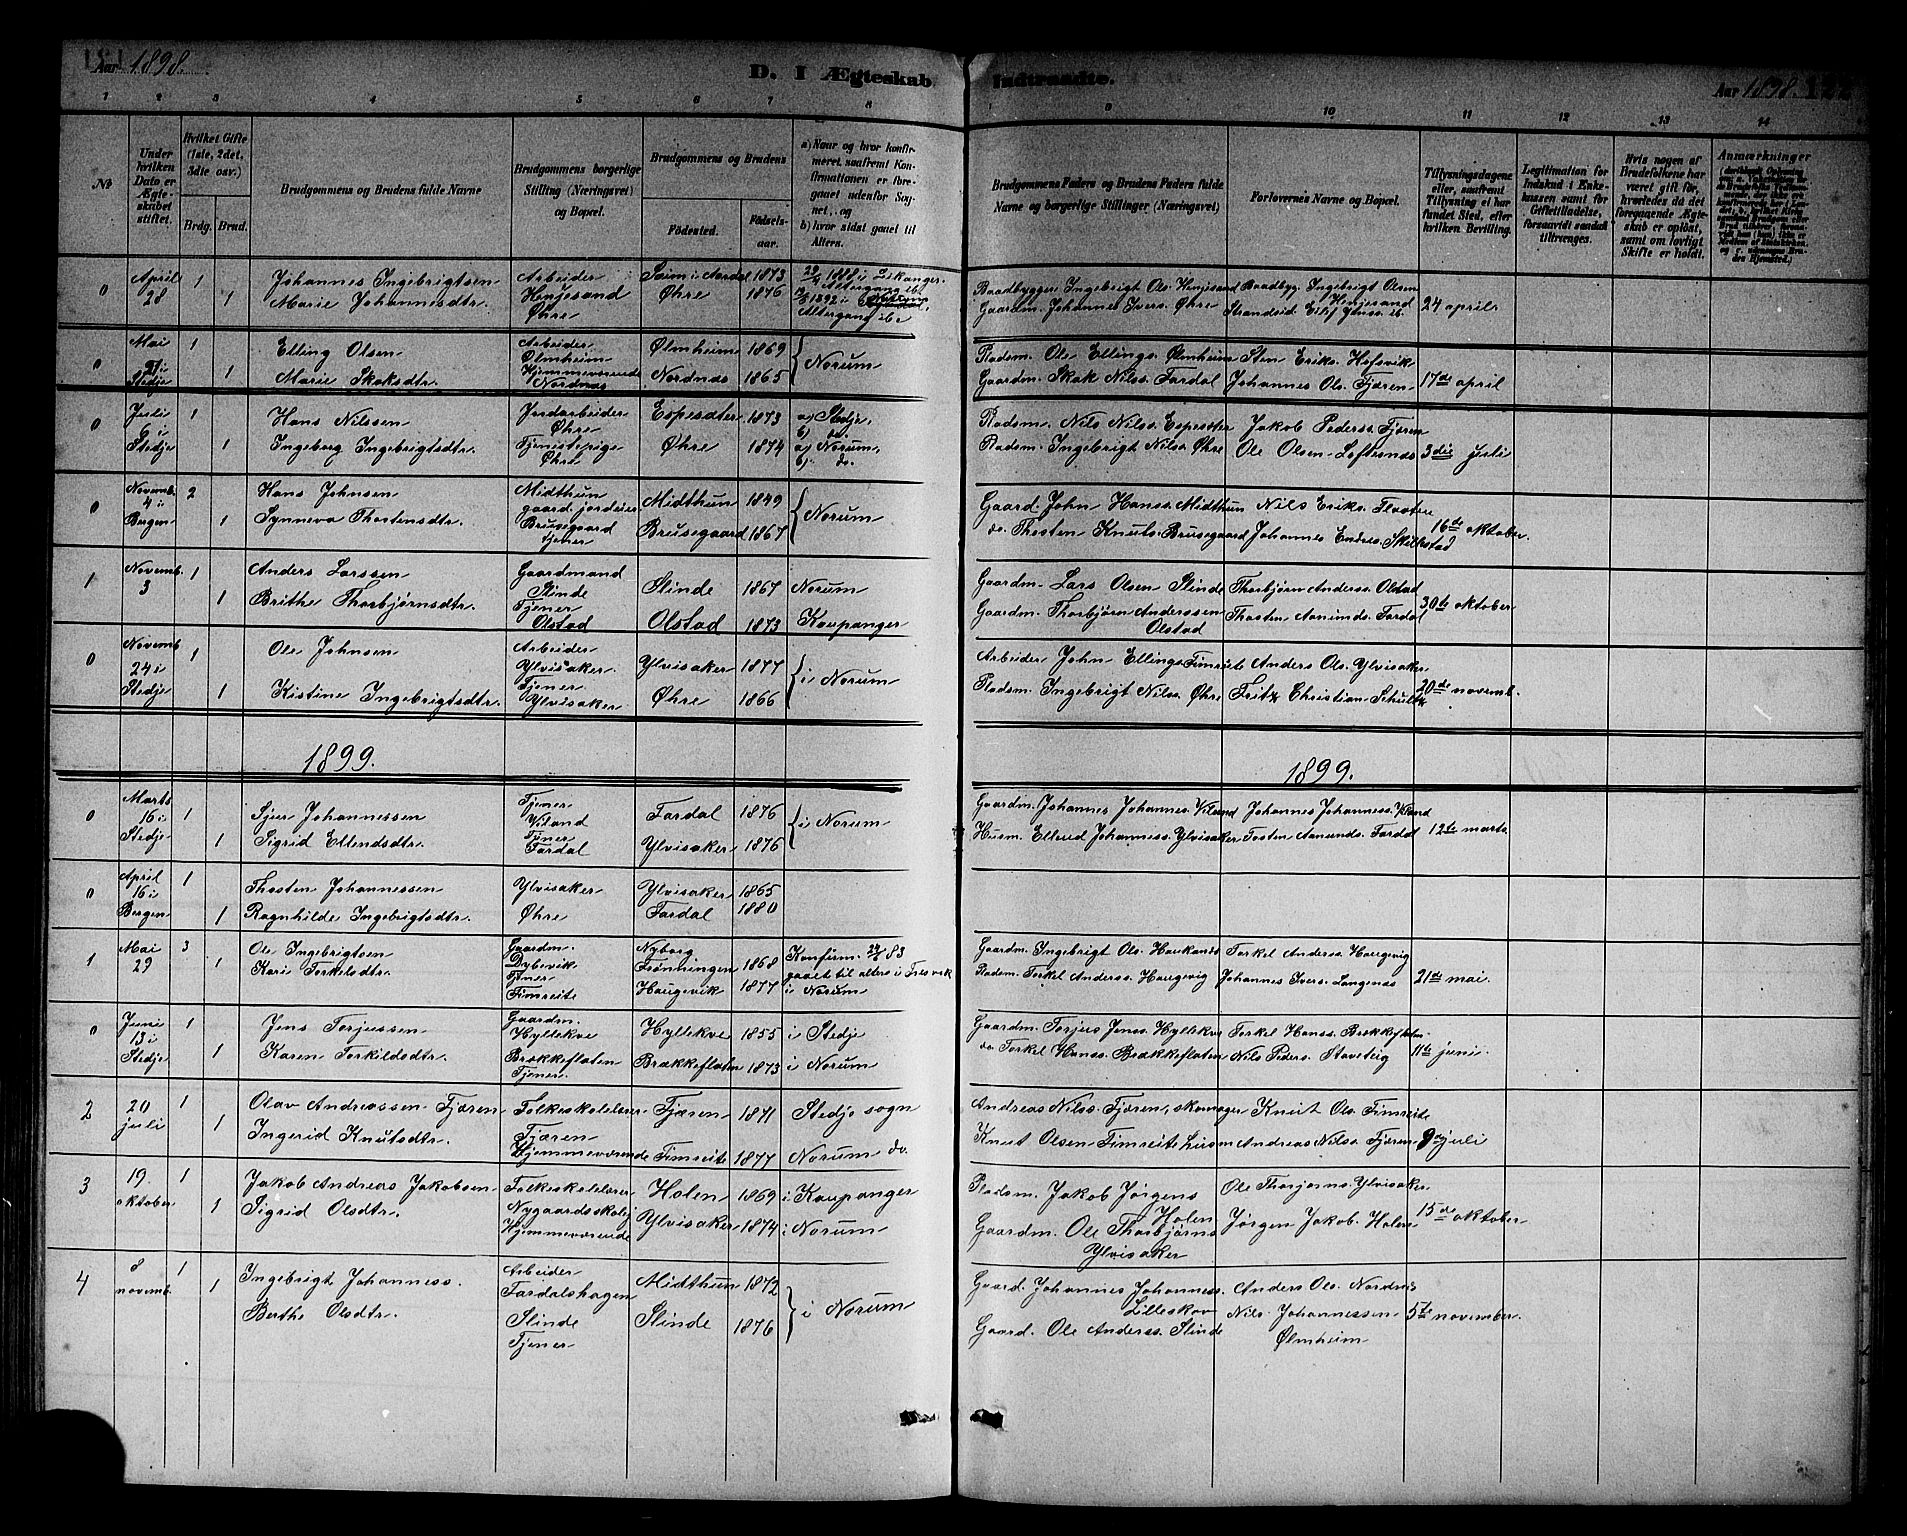 Aar 1898.
D. I Ægteskab
Indtraadte.
Aar 1898.
1 2 3 4 5 6 7 8
9 10 11 12 13 14
№
Under hvilken Dato er Ægteskabet stiftet.
Hvilket Gifte (1ste, 2det, 3die osv.)
Brdg. Brud.
Brudgommens og Brudens fulde Navne
Brudgommens borgerlige Stilling (Næringsvei) og Bopæl.
Brudgommens og Brudens
Födested. Födselsaar.
a) Naar og hvor konfirmeret saafremt Konfirmationen er foregaaet udenfor Sognet, og
b) hvor sidst gaaet til Alters.
Brudgommens Faders og Brudens Faders fulde Navne og borgerlige Stillinger (Næringsvei)
Forlovernes Navne og Bopæl.
Tillysningsdagene eller, saafremt Tillysning ei har fundet Sted, efter hvilken Bevilling.
Legitimation for Indskud i Enkekassen samt for Giftetilladelse, forsaavidt saadan tiltrænges.
Hvis nogen af Brudefolkene har været gift för, hvorledes da det foregaaende Ægteskab er oplöst, samt om lovligt Skifte er holdt.
Anmærkninger
0 April 28 1 Johannes Ingebrigtsen Arbeider Henjesand Seim i Aardal 1873
1 Marie Johannesdtr. Øhre Øhre 1876
Altergang ib.
Baadbygger Ingebrigt Ols. Henjesand Baadbyg. Ingebrigt Olsen Henjesand
Gaardm. Johannes Ivers. Øhre Strandsid. Jens. ib. 24 april.
0 Mai i Stedje 1 Elling Olsen Arbeider Ølmheim Ølmheim 1869 Norum
1 Marie Skaksdtr. Hjemmeværende Nordnæs Nordnæs 1865
Pladsm. Ole Ellings. Ølmheim Sten Eriks. Hofsvik
Gaardm. Skak Nils. Fardal Johannes Ols. Fjæren 17de april
0 Juli 6 i Stedje 1 Hans Nilssen Jordarbeider Øhre Espesæter 1873 a) Stedje, b) do.
1 Ingeborg Ingebrigtsdtr. Tjenestepige Øhre Øhre 1874 a) Norum, b) do.
Pladsm. Nils Nils. Espesæter Jakob Peders. Fjæren
Pladsm. Ingebrigt Nils. Øhre Ole Olsen Loftesnæs 3die juli
0 Novemb. 4 i Bergen 2 Hans Johnsen Midthun gaard. jordeier Midthun 1849 Norum
1 Synneva Thostensdtr. Brusegaard tjener Brusegaard 1867
Gaard. John Hanss. Midthun Nils Eriks.
do. Thosten Knuts. Brusegaard Johannes Endres. 16de oktober.
1 Novemb. 3 1 Anders Larssen Gaardmand Slinde Slinde 1867 Norum
1 Brithe Thorbjørnsdtr. Tjener Olstad Olstad 1873 Kaupanger
Gaardm. Lars Olsen Slinde Thorbjørn Anderss. Olstad
Gaardm. Thorbjørn Anderssen Olstad Thosten Amunds. Fardal 30te oktober
0 Novemb 24 i Stedje 1 Ole Johnsen Arbeider Ylvisaker Ylvisaker 1877 i Norum
1 Kistine Ingebrigtsdtr. Tjener Ylvisaker Øhre 1866
Arbeider John Ellings. Timreit Anders Ols. Ylvisaker
Pladsm. Ingebrigt Nils. Øhre Fritz Christian Schultz 20de novemb.
1899.
1899.
0 Marts 16 i Stedje 1 Sjur Johannessen Tjener Viland Fardal 1876 i Norum
1 Sigrid Ellendsdtr. Tjener Fardal Ylvisaker 1876
Gaardm. Johannes Johannes. Viland Johannes Johanness. Viland
Husm. Ellend Johanness. Ylvisaker Tosten Amunds. Fardal 12te marts
0 April 16 i Bergen 1 Thosten Johannessen Ylvisaker Ylvisaker 1865
1 Ragnhilde Ingebrigtsdtr. Øhre Fardal 1880
1 Mai 29 3 Ole Ingebrigtsen Gaardm. Dybevik Nyborg Frønningen 1868 Konfirm. 83 gaaet til alters i Fresvik
1 Kari Torkelsdtr. Tjener Timreite Haugevik 1877 i Norum
Gaardm. Ingebrigt Ols. Haukanæs Torkel Anderss. Haugevig
Pladsm. Torkel Anderss. Haugevig Johannes Ivers. Langenæs 21de mai.
0 Juni 13 i Stedje 1 Jens Torjussen Gaardm. Hyllekve Hyllekve 1855 i Stedje
1 Karen Torkildsdtr. Brækkeflaten Tjener. Brækkeflaten 1873 i Norum
Gaardm. Torjus Jenss. Hyllekve Torkel Hanss. Brækkeflaten
do Torkel Hanss. Brækkeflaten Nils Peders. Stoveteig 11te juni.
2 20 juli 1 Olav Andreassen Fjæren Folkeskolelærer Fjæren Fjæren 1871 Stedje sogn
1 Ingerid Knutsdtr. Hjemmeværende Timreite 1877 Norum do.
Andreas Nils. Fjæren, skomager Knut Ols. Timreite
Knut Olsen Timreite Husm Andreas Nils. Fjæren 9de juli
3 19. oktober 1 Jakob Andreas Jakobsen Folkeskolelærer Nygaardsskolen Holen 1869 i Kaupanger
1 Sigrid Olsdtr. Hjemmeværende Ylvisaker 1874 i Norum
Pladsm. Jakob Jørgens Holen Ole Thorjørns. Ylvisaker
Gaardm. Ole Thorbjørns Ylvisaker Jørgen Jakob. Holen 15de oktober
4 8 novemb. 1 Ingebrigt Johanness. Arbeider Fardalshagen Midthun 1872 i Norum
1 Berthe Olsdtr. Slinde Tjener Slinde 1876
Gaard. Johannes Johanness. Lilleskov Anders Ols. Nordnæs
Gaard. Ole Anderss. Slinde Nils Johannessen Ølmheim 5te november.